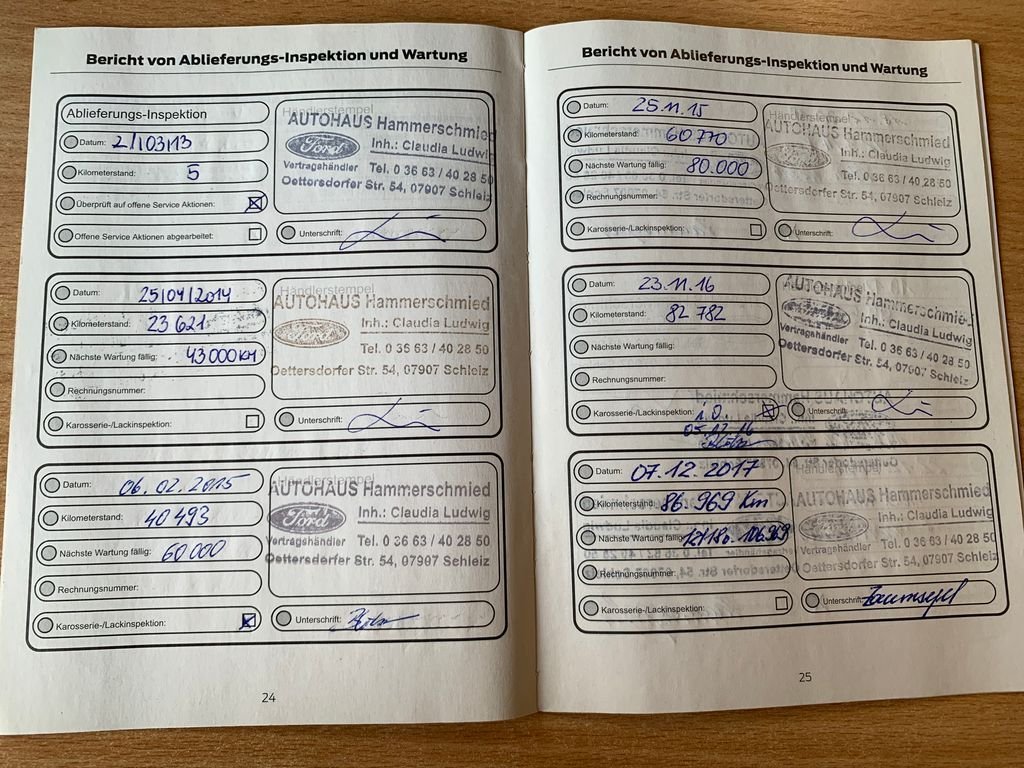 Bericht von Ablieferungs-Inspektion und Wartung
Ablieferungs-Inspektion
Datum: 21/03/13
Kilometerstand: 5
Überprüft auf offene Service Aktionen:
Offene Service Aktionen abgearbeitet:
Händlerstempel
AUTOHAUS Hammerschmied
Ford
Inh.: Claudia Ludwig
Vertragshändler Tel. 0 36 63 / 40 28 50
Oettersdorfer Str. 54, 07907 Schleiz
Unterschrift:
Datum: 25/04/2014
Kilometerstand: 23 621
Nächste Wartung fällig: 43000 KM
Rechnungsnummer:
Karosserie-/Lackinspektion:
Händlerstempel
AUTOHAUS Hammerschmied
Inh.: Claudia Ludwig
Tel. 0 36 63 / 40 28 50
Oettersdorfer Str. 54, 07907 Schleiz
Unterschrift:
Datum: 06.02.2015
Kilometerstand: 40 493
Nächste Wartung fällig: 60.000
Rechnungsnummer:
Karosserie-/Lackinspektion:
Händlerstempel
AUTOHAUS Hammerschmied
Ford
Inh.: Claudia Ludwig
Vertragshändler Tel. 0 36 63 / 40 28 50
Oettersdorfer Str. 54, 07907 Schleiz
Unterschrift:
24
Bericht von Ablieferungs-Inspektion und Wartung
Datum: 25.11.15
Kilometerstand: 60770
Nächste Wartung fällig: 80.000
Rechnungsnummer:
Karosserie-/Lackinspektion:
Händlerstempel
AUTOHAUS Hammerschmied
Inh.: Claudia Ludwig
Tel. 0 36 63 / 40 28 50
Oettersdorfer Str. 54, 07907 Schleiz
Unterschrift:
Datum: 23.11.16
Kilometerstand: 82 782
Nächste Wartung fällig:
Rechnungsnummer:
Karosserie-/Lackinspektion: i.O.
05.12.16
AUTOHAUS Hammerschmied
Inh.: Claudia Ludwig
Vertragshändler Tel. 0 36 63 / 40 28 50
Oettersdorfer Str. 54, 07907 Schleiz
Unterschrift:
Datum: 07.12.2017
Kilometerstand: 86.969 Km
Nächste Wartung fällig: 12/18 o. 106.969
Rechnungsnummer:
Karosserie-/Lackinspektion:
Händlerstempel
AUTOHAUS Hammerschmied
Inh.: Claudia Ludwig
Vertragshändler Tel. 0 36 63 / 40 28 50
Oettersdorfer Str. 54, 07907 Schleiz
Unterschrift:
25